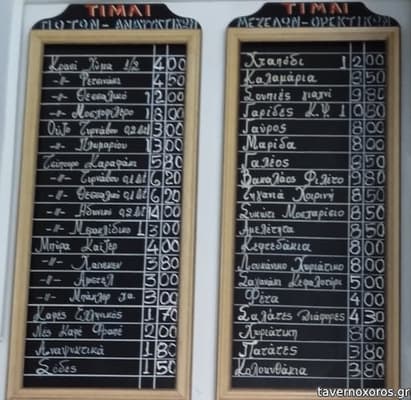 ΤΙΜΑΙ
ΠΟΤΩΝ - ΑΝΑΨΥΚΤΙΚΩΝ
Κρασί Χύμα 1/2 4 00
-//- Ρετσινάκι 4 50
-//- Θεσσαλικό 12 00
-//- Μοσχοφίλερο 18 00
Ούζο Τυρνάβου 0,2 lit 13 00
-//- Πλωμαρίου 13 00
Τσίπουρο Καραφάκι 5 80
-//- Τυρνάβου 0,2 lit 6 20
-//- Θεσσαλικό 0,2 lit 6 20
-//- Αδωνικό 0,2 14 00
-//- Μερακλίδικο 13 00
Μπύρα Κάϊζερ 4 00
-//- Χάινεκεν 3 80
-//- Άμστελ 3 00
-//- Μπάκλερ χ.α. 3 00
Καφές Ελληνικός 1 70
Νες Καφέ Φραπέ 2 00
Αναψυκτικά 1 80
Σόδες 1 50
ΤΙΜΑΙ
ΜΕΖΕΔΩΝ - ΟΡΕΚΤΙΚΩΝ
Χταπόδι 12 00
Καλαμάρια 8 50
Σουπιές γιαχνί 9 80
Γαρίδες Κ.Ψ. 10 80
Γαύρος 8 00
Μαρίδα 8 00
Γαλέος 8 50
Βακαλάος Φιλέτο 9 80
Τηγανιά Χοιρινή 8 50
Συκώτι Μοσχαρίσιο 8 50
Αμελέτητα 8 50
Κεφτεδάκια 8 00
Λουκάνικο Χωριάτικο 8 00
Σαγανάκι Κεφαλοτύρι 5 00
Φέτα 4 00
Σαλάτες διάφορες 4 30
Χωριάτικη 8 00
Πατάτες 3 80
Κολοκυθάκια 3 80
tavernoxoros.gr